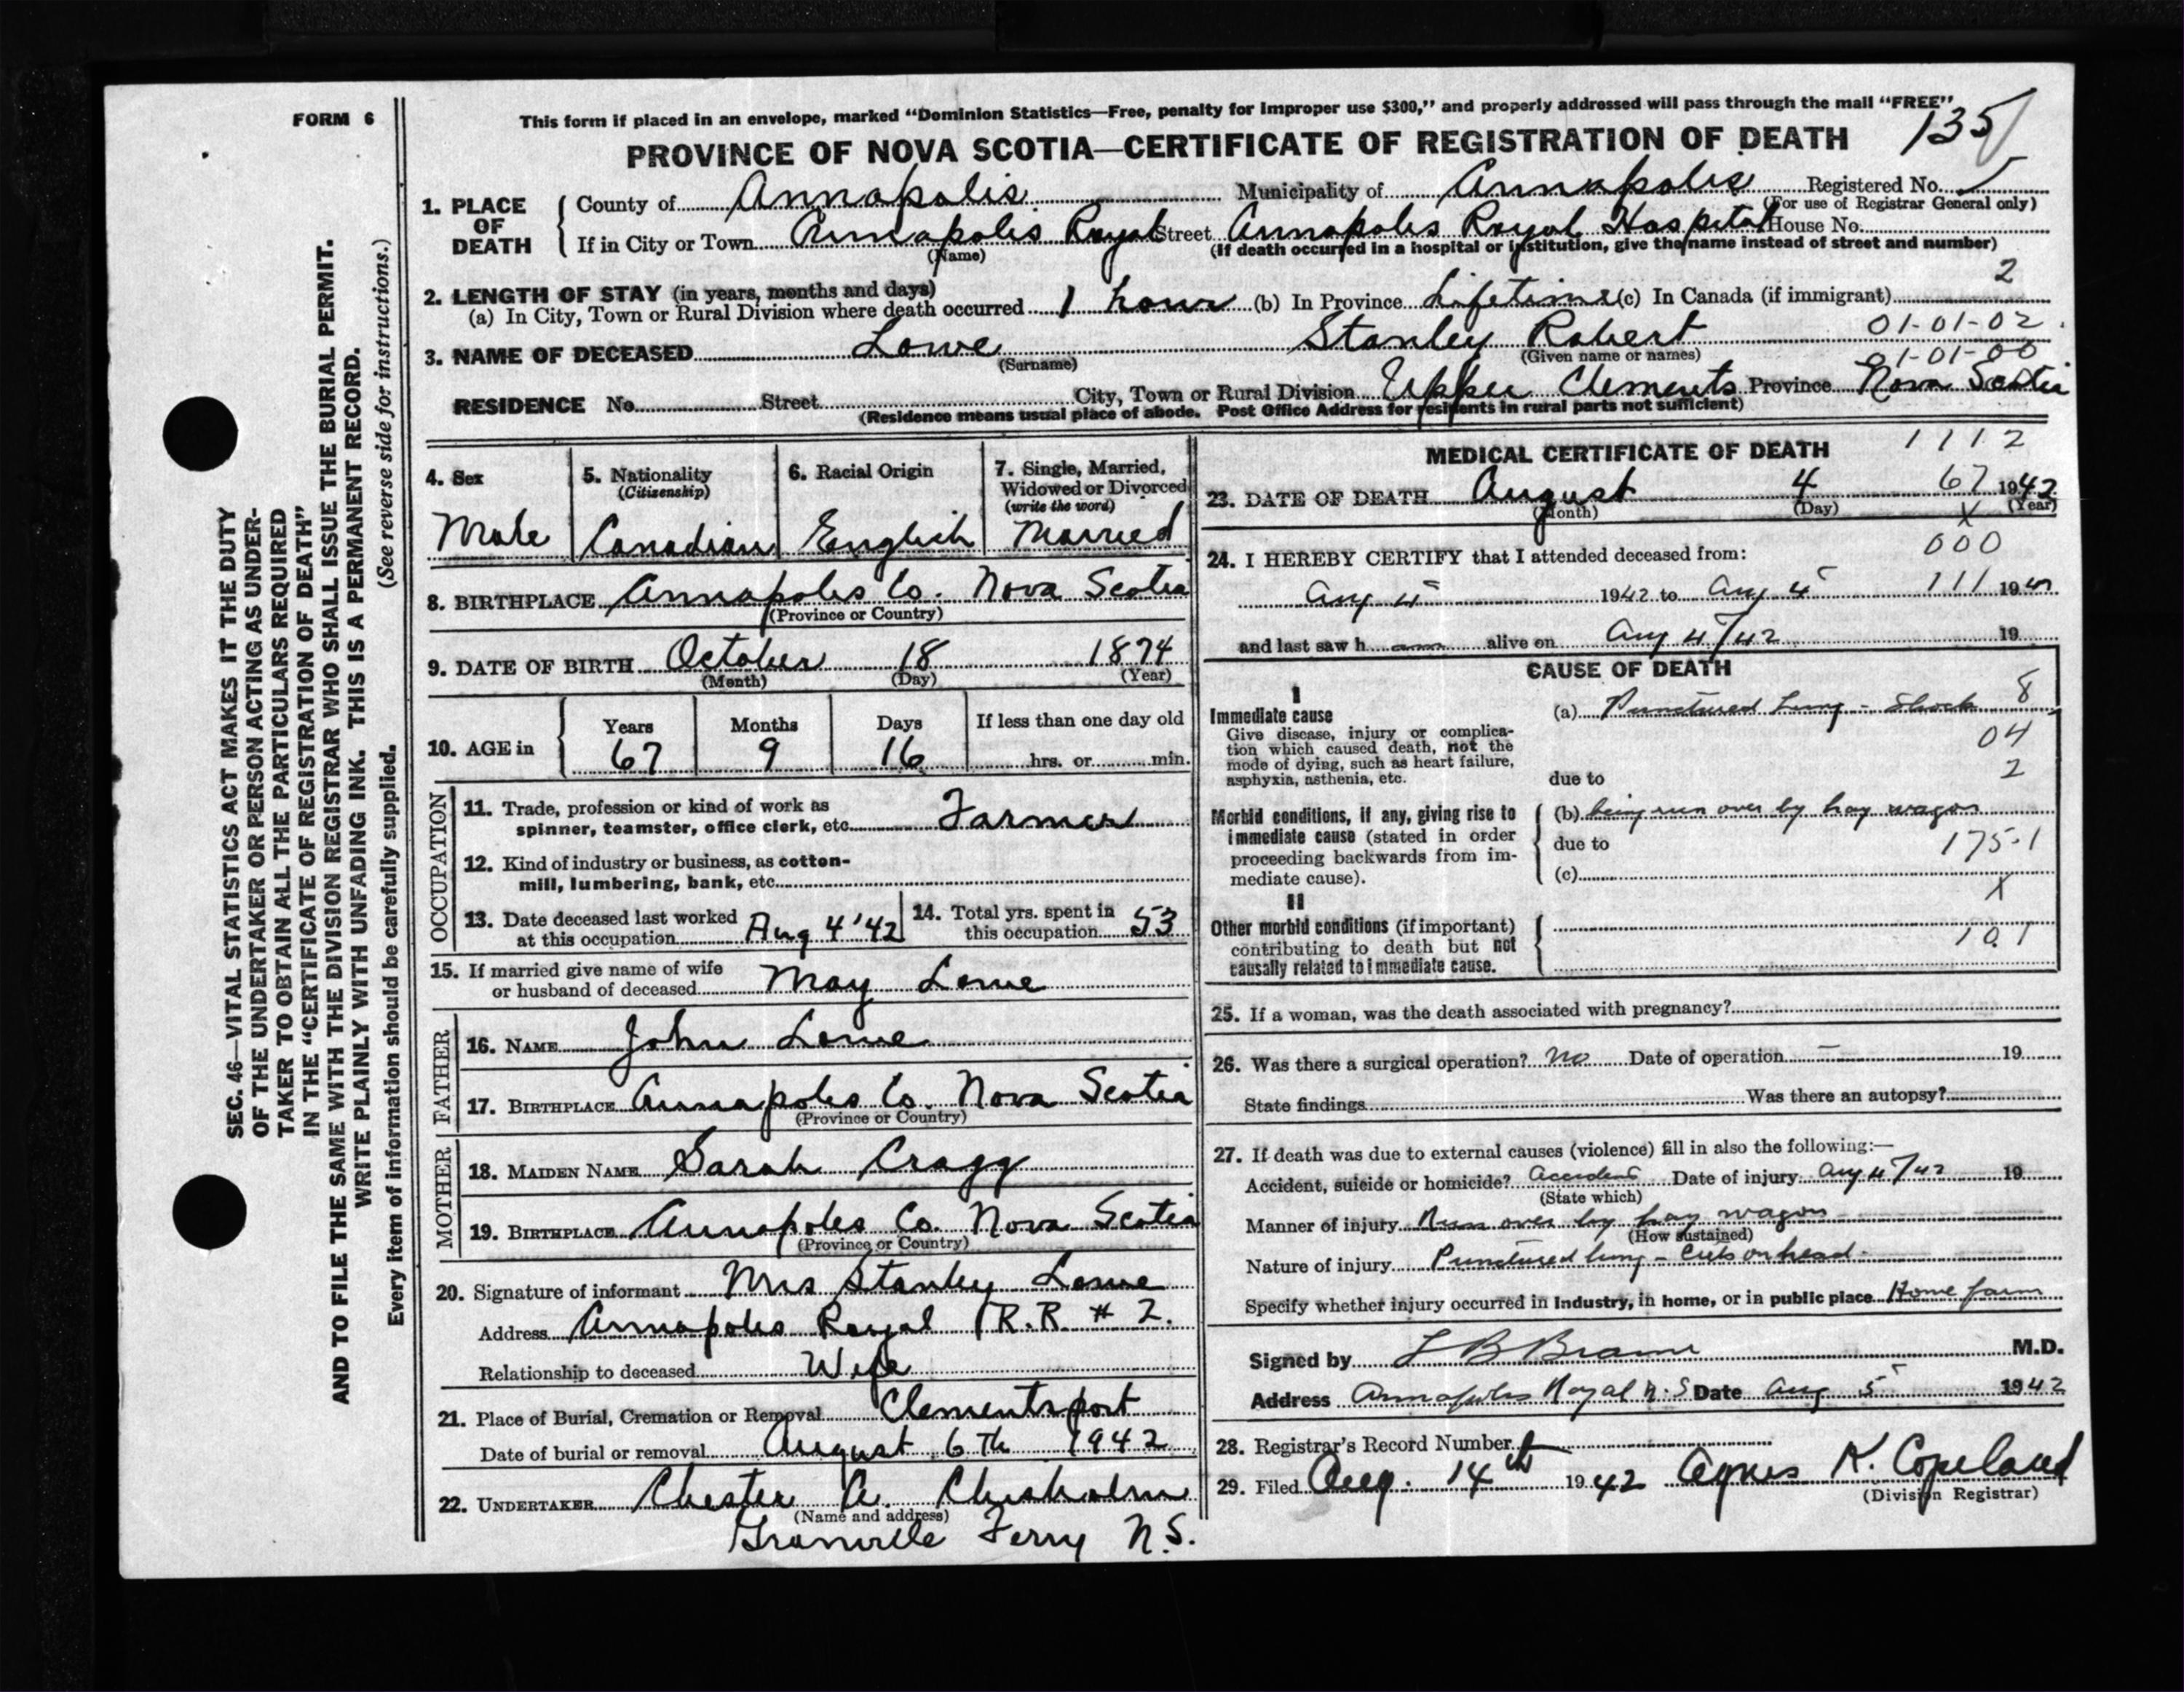 FORM 6
This form if placed in an envelope, marked "Dominion Statistics—Free, penalty for improper use $300," and properly addressed will pass through the mail "FREE"
135
PROVINCE OF NOVA SCOTIA—CERTIFICATE OF REGISTRATION OF DEATH
1. PLACE OF DEATH
County of Annapolis Municipality of Annapolis Registered No.
(For use of Registrar General only)
If in City or Town Annapolis Royal Street Annapolis Royal Hospital House No.
(Name) (If death occurred in a hospital or institution, give the name instead of street and number)
2
2. LENGTH OF STAY (in years, months and days)
(a) In City, Town or Rural Division where death occurred 1 hour (b) In Province Lifetime (c) In Canada (if immigrant)
01-01-02
3. NAME OF DECEASED Lowe Stanley Robert
(Surname) (Given name or names)
01-01-00
RESIDENCE No. Street City, Town or Rural Division Upper Clements Province Nova Scotia
(Residence means usual place of abode. Post Office Address for residents in rural parts not sufficient)
4. Sex
Male
5. Nationality
(Citizenship)
Canadian
6. Racial Origin
English
7. Single, Married,
Widowed or Divorced
(write the word)
Married
8. BIRTHPLACE Annapolis Co. Nova Scotia
(Province or Country)
9. DATE OF BIRTH October 18 1874
(Month) (Day) (Year)
10. AGE in
Years Months Days If less than one day old
67 9 16 hrs. or min.
OCCUPATION
11. Trade, profession or kind of work as
spinner, teamster, office clerk, etc. Farmer
12. Kind of industry or business, as cotton-
mill, lumbering, bank, etc.
13. Date deceased last worked
at this occupation Aug 4 '42
14. Total yrs. spent in
this occupation 53
15. If married give name of wife
or husband of deceased May Lowe
FATHER
16. NAME John Lowe
17. BIRTHPLACE Annapolis Co. Nova Scotia
(Province or Country)
MOTHER
18. MAIDEN NAME Sarah Cragg
19. BIRTHPLACE Annapolis Co. Nova Scotia
(Province or Country)
20. Signature of informant Mrs Stanley Lowe
Address Annapolis Royal R.R. # 2.
Relationship to deceased Wife
21. Place of Burial, Cremation or Removal Clementsport
Date of burial or removal August 6th 1942
22. UNDERTAKER Chester A. Chisholm
(Name and address)
Granville Ferry N.S.
MEDICAL CERTIFICATE OF DEATH
1112
23. DATE OF DEATH August 4 67 1942
(Month) (Day) (Year)
X
24. I HEREBY CERTIFY that I attended deceased from:
000
Aug 4 1942 to Aug 4 111 1942
and last saw h alive on Aug 4/42 19
CAUSE OF DEATH
I
Immediate cause
Give disease, injury or complica-
tion which caused death, not the
mode of dying, such as heart failure,
asphyxia, asthenia, etc.
(a) Punctured Lung - Shock 8
04
2
due to
Morbid conditions, if any, giving rise to
immediate cause (stated in order
proceeding backwards from im-
mediate cause).
(b) being run over by hay wagon
due to 175-1
(c)
X
II
Other morbid conditions (if important)
contributing to death but not
causally related to immediate cause.
10.1
25. If a woman, was the death associated with pregnancy?
26. Was there a surgical operation? No Date of operation — 19
State findings Was there an autopsy?
27. If death was due to external causes (violence) fill in also the following:—
Accident, suicide or homicide? Accident Date of injury Aug 4/42 19
(State which)
Manner of injury Run over by hay wagon
(How sustained)
Nature of injury Punctured lung - Cuts on head.
Specify whether injury occurred in industry, in home, or in public place Home farm
Signed by L B Braine M.D.
Address Annapolis Royal N.S Date Aug 5 1942
28. Registrar's Record Number
29. Filed Aug. 14th 1942 Agnes K. Copeland
(Division Registrar)
SEC. 46—VITAL STATISTICS ACT MAKES IT THE DUTY
OF THE UNDERTAKER OR PERSON ACTING AS UNDER-
TAKER TO OBTAIN ALL THE PARTICULARS REQUIRED
IN THE "CERTIFICATE OF REGISTRATION OF DEATH"
AND TO FILE THE SAME WITH THE DIVISION REGISTRAR WHO SHALL ISSUE THE BURIAL PERMIT.
WRITE PLAINLY WITH UNFADING INK. THIS IS A PERMANENT RECORD.
(See reverse side for instructions.)
Every item of information should be carefully supplied.